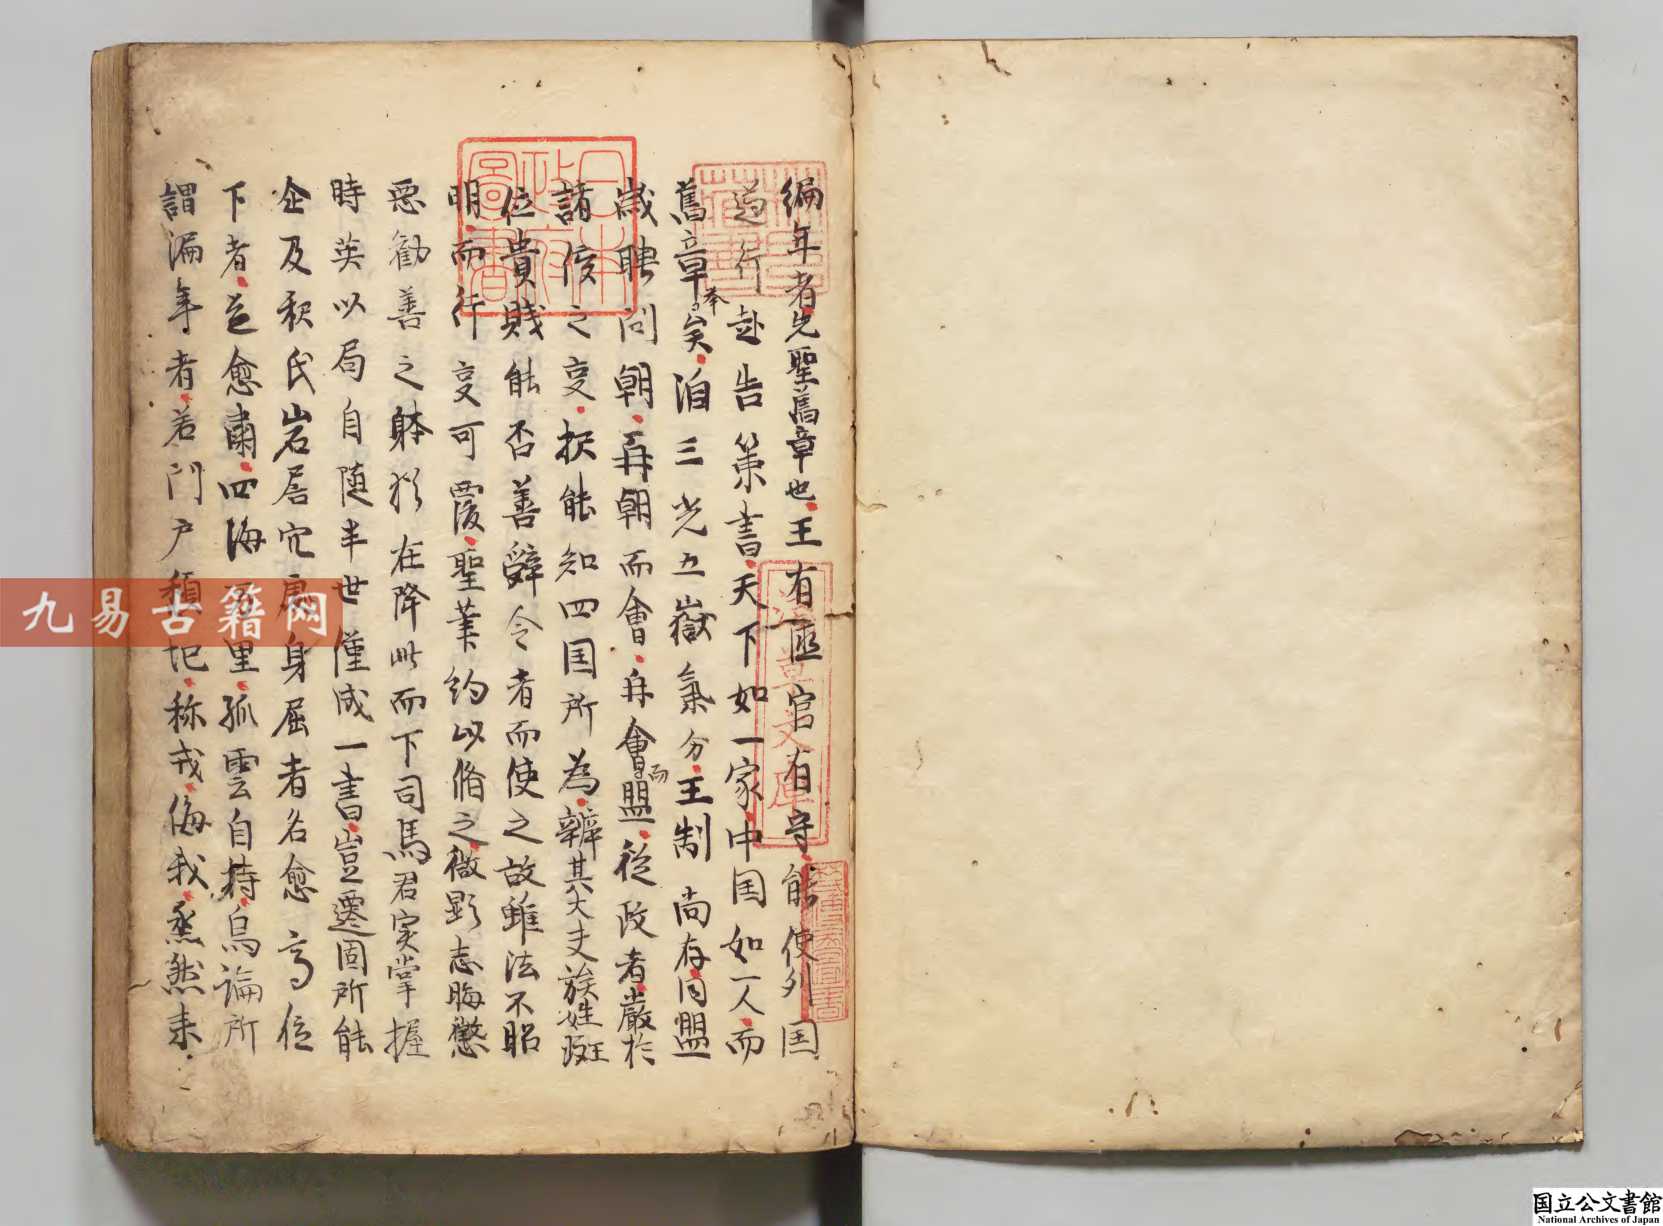 編年者先聖舊章也王有匝官有守能使列国
遵行赴告策書天下如一家中国如一人而
舊章挙矣洎三光五嶽氣分王制尚存同盟
歳聘問朝再朝而會再會而盟従政者嚴於
諸侯之変択能知四国所為辨其大夫族姓班
位貴賎能否善辭令者而使之故雖法不昭
明而行変可覆聖筆約以脩之微顕志晦懲
悪勧善之躰猶在降此而下司馬君実掌握
時英以局自随半世僅成一書豈遷固所能
企及釈氏岩居穴處身屈者名愈高位
下者道愈肅四海万里孤雲自持烏論所
謂漏年者若門戸頽圯称戎侮我烝然来
日本政府圖書
九易古籍网
国立公文書館
National Archives of Japan